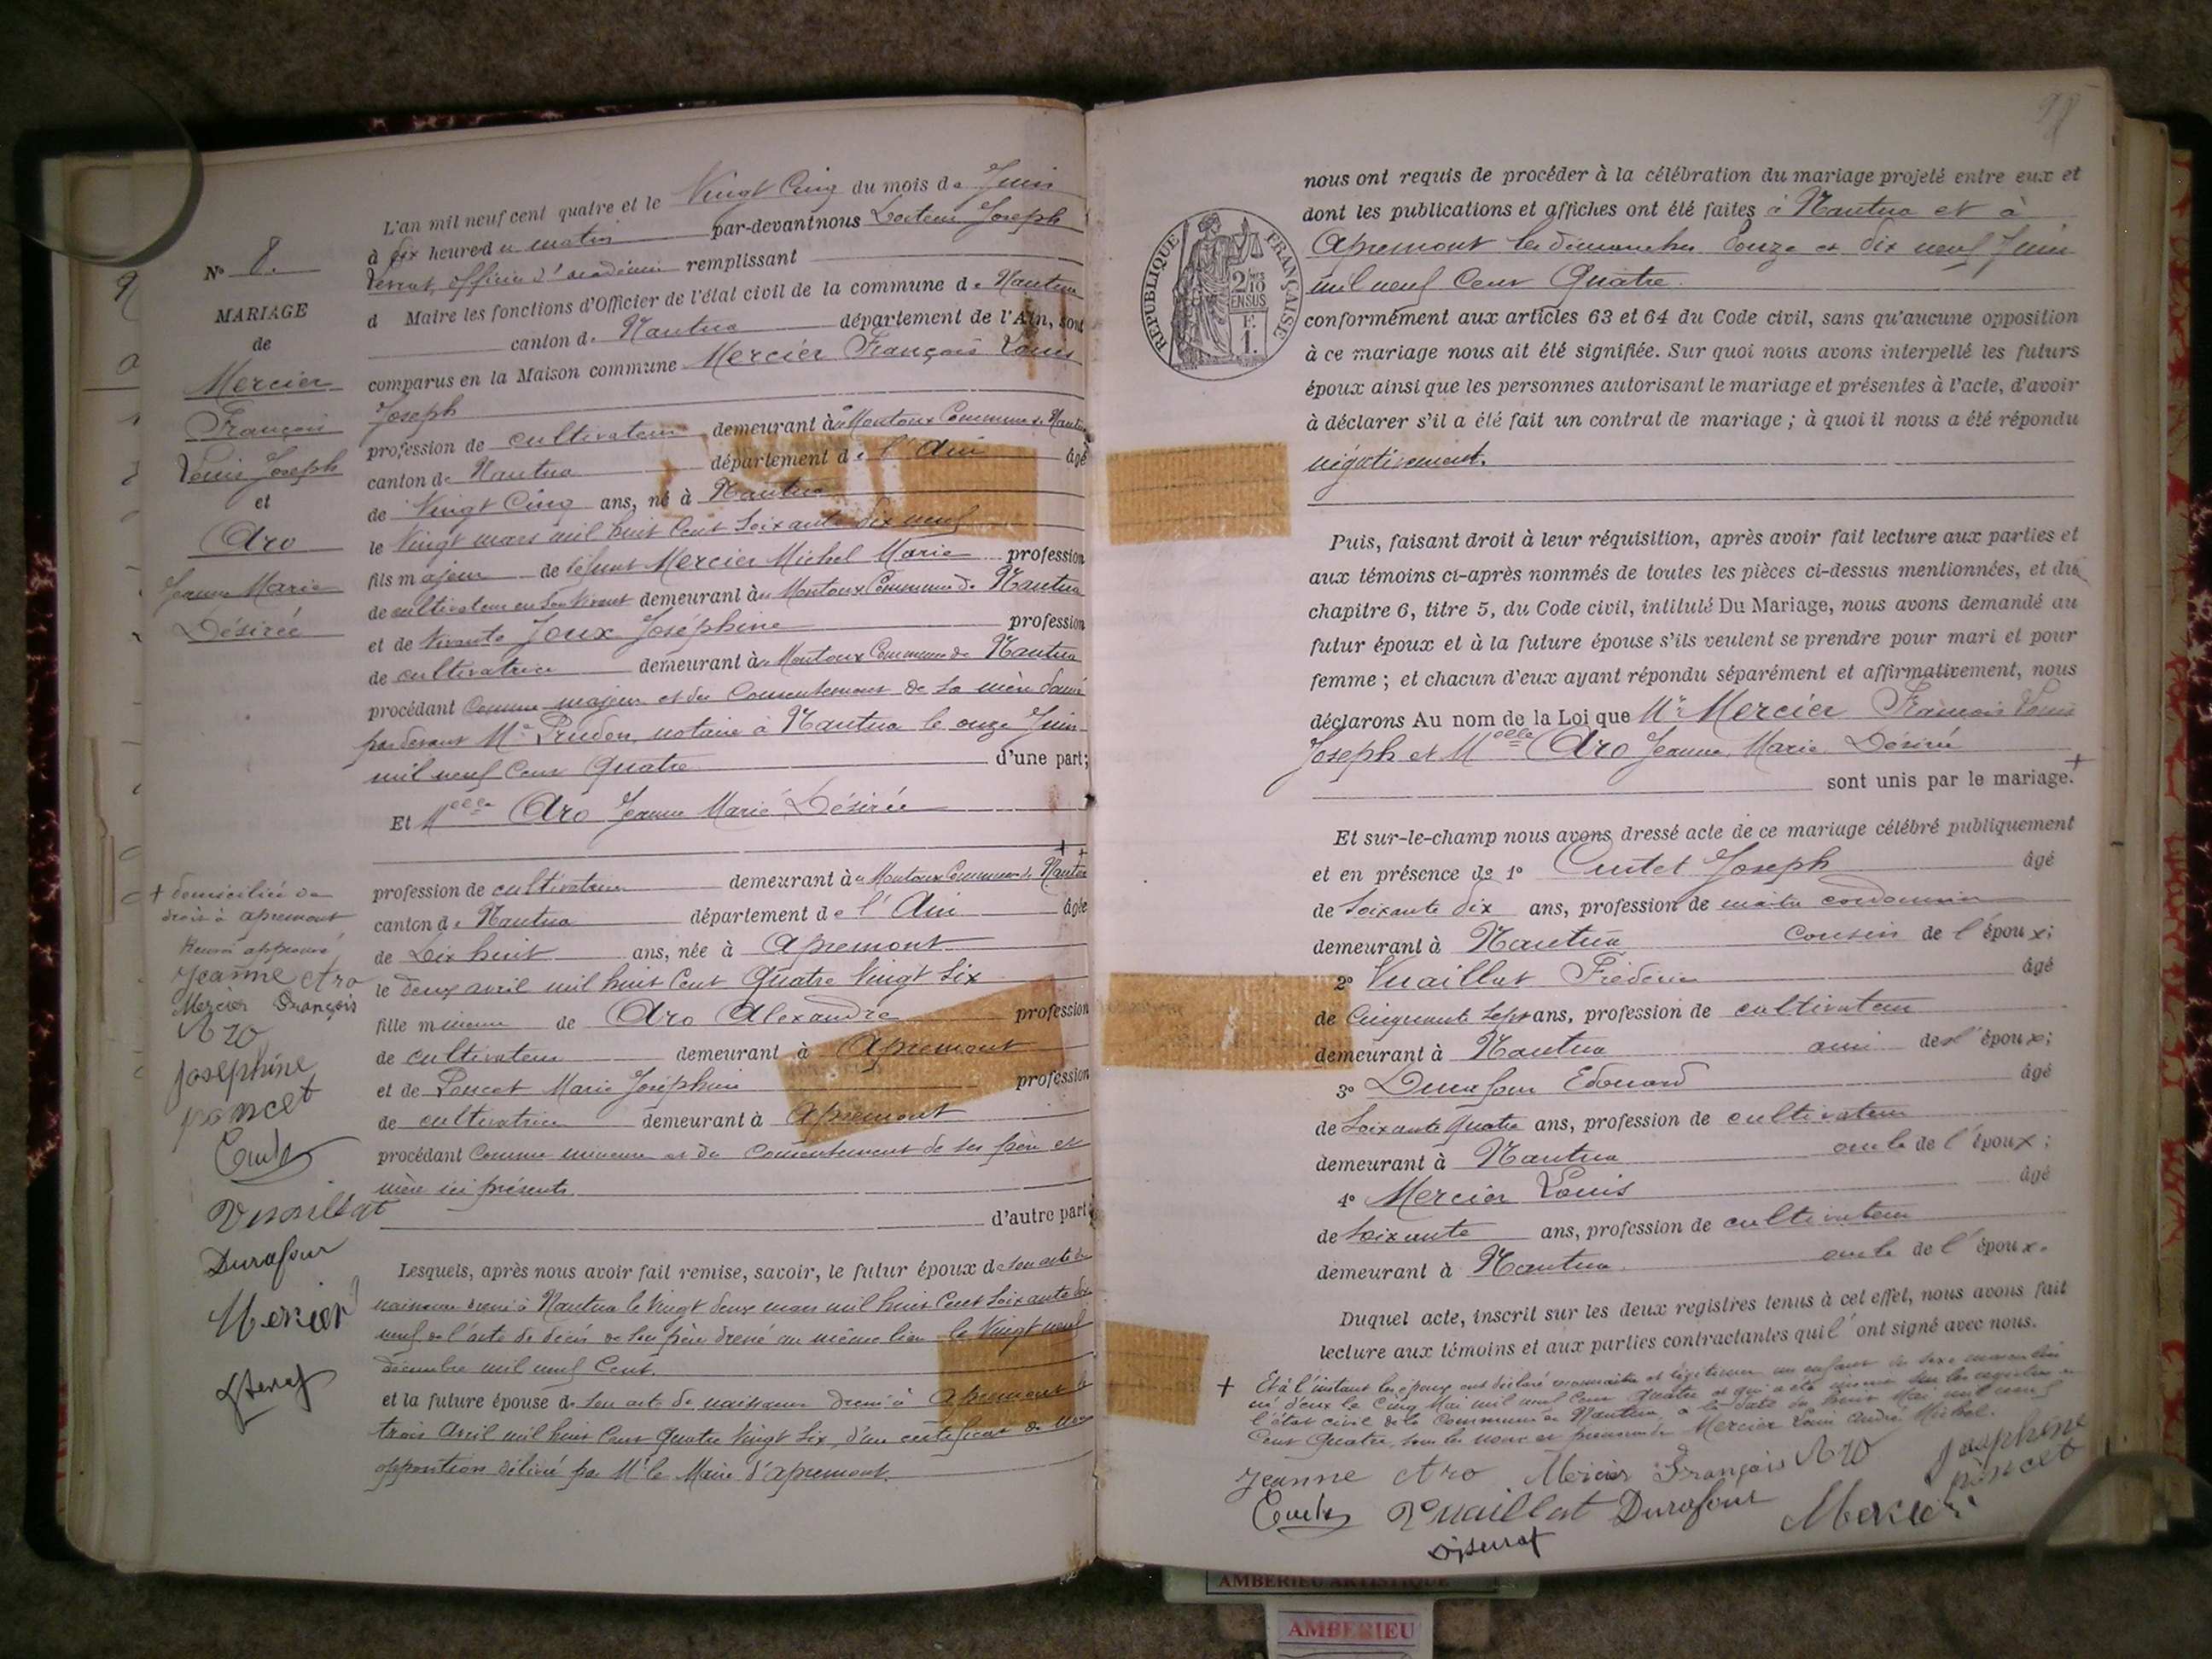 N° 8.
MARIAGE
de
Mercier
François
Louis Joseph
et
Aro
Jeanne Marie
Désirée
+ domiciliée de
droit à apremont
Renvoi approuvé
Jeanne Aro
Mercier François
Aro
Josephine
poncet
Vuaillat
Durafour
Mercier
L'an mil neuf cent quatre et le Vingt Cinq du mois de Juin
à dix heures du matin par-devant nous Docteur Joseph
officier d'académie remplissant
d Maire les fonctions d'Officier de l'état civil de la commune de Nantua
canton de Nantua département de l'Ain, sont
comparus en la Maison commune Mercier François Louis
Joseph
profession de cultivateur demeurant à Montoux Commune de Nantua
canton de Nantua département de l'Ain âgé
de Vingt Cinq ans, né à Nantua
le Vingt mars mil huit Cent Soixante dix neuf
fils majeur de défunt Mercier Michel Marie profession
de cultivateur en son vivant demeurant à Montoux Commune de Nantua
et de vivante Joux Joséphine profession
de cultivatrice demeurant à Montoux Commune de Nantua
procédant Comme majeur et du Consentement de sa mère donné
par devant Me Prudon, notaire à Nantua le onze Juin
mil neuf Cent Quatre d'une part;
Et Melle Aro Jeanne Marie Désirée
profession de cultivateur demeurant à Montoux Commune de Nantua ++
canton de Nantua département de l'Ain âgée
de Dix huit ans, née à Apremont
le deux avril mil huit Cent Quatre Vingt Six
fille mineure de Aro Alexandre profession
de cultivateur demeurant à Apremont
et de Poncet Marie Joséphine profession
de cultivatrice demeurant à Apremont
procédant Comme mineure et du Consentement de ses père et
mère ici présents
d'autre part
Lesquels, après nous avoir fait remise, savoir, le futur époux de son acte de
naissance dressé à Nantua le Vingt deux mars mil huit Cent Soixante dix
neuf, de l'acte de décès de son père dressé au même lieu le Vingt neuf
décembre mil neuf Cent.
et la future épouse de son acte de naissance dressé à Apremont le
trois Avril mil huit Cent Quatre Vingt Six, d'un certificat de non
opposition délivré par Mr le Maire d'Apremont.
98
RÉPUBLIQUE FRANÇAISE
2/10
EN SUS
F.
1.
nous ont requis de procéder à la célébration du mariage projeté entre eux et
dont les publications et affiches ont été faites à Nantua et à
Apremont les dimanches Douze et Dix neuf Juin
mil neuf Cent Quatre.
conformément aux articles 63 et 64 du Code civil, sans qu'aucune opposition
à ce mariage nous ait été signifiée. Sur quoi nous avons interpellé les futurs
époux ainsi que les personnes autorisant le mariage et présentes à l'acte, d'avoir
à déclarer s'il a été fait un contrat de mariage ; à quoi il nous a été répondu
négativement.
Puis, faisant droit à leur réquisition, après avoir fait lecture aux parties et
aux témoins ci-après nommés de toutes les pièces ci-dessus mentionnées, et du
chapitre 6, titre 5, du Code civil, intitulé Du Mariage, nous avons demandé au
futur époux et à la future épouse s'ils veulent se prendre pour mari et pour
femme ; et chacun d'eux ayant répondu séparément et affirmativement, nous
déclarons Au nom de la Loi que Mr Mercier François Louis
Joseph et Melle Aro Jeanne Marie Désirée
sont unis par le mariage. +
Et sur-le-champ nous avons dressé acte de ce mariage célébré publiquement
et en présence de 1° Joseph âgé
de Soixante dix ans, profession de maître cordonnier
demeurant à Nantua Cousin de l'époux;
2° Vuaillat Frédéric âgé
de Cinquante Sept ans, profession de cultivateur
demeurant à Nantua ami de l'époux;
3° Durafour Edouard âgé
de Soixante Quatre ans, profession de cultivateur
demeurant à Nantua oncle de l'époux;
4° Mercier Louis âgé
de Soixante ans, profession de cultivateur
demeurant à Nantua oncle de l'époux.
Duquel acte, inscrit sur les deux registres tenus à cet effet, nous avons fait
lecture aux témoins et aux parties contractantes qui l'ont signé avec nous.
+ Et à l'instant les époux ont déclaré reconnaître et légitimer un enfant du sexe masculin
né d'eux le Cinq Mai mil neuf Cent Quatre et qui a été inscrit sur les registres de
l'état civil de la Commune de Nantua, à la date du huit Mai mil neuf
Cent Quatre, sous les noms et prénoms de Mercier Louis André Michel.
Jeanne Aro Mercier François Aro Josephine
poncet
Vuaillat Durafour Mercier
AMBERIEU ARTISTIQUE
AMBERIEU